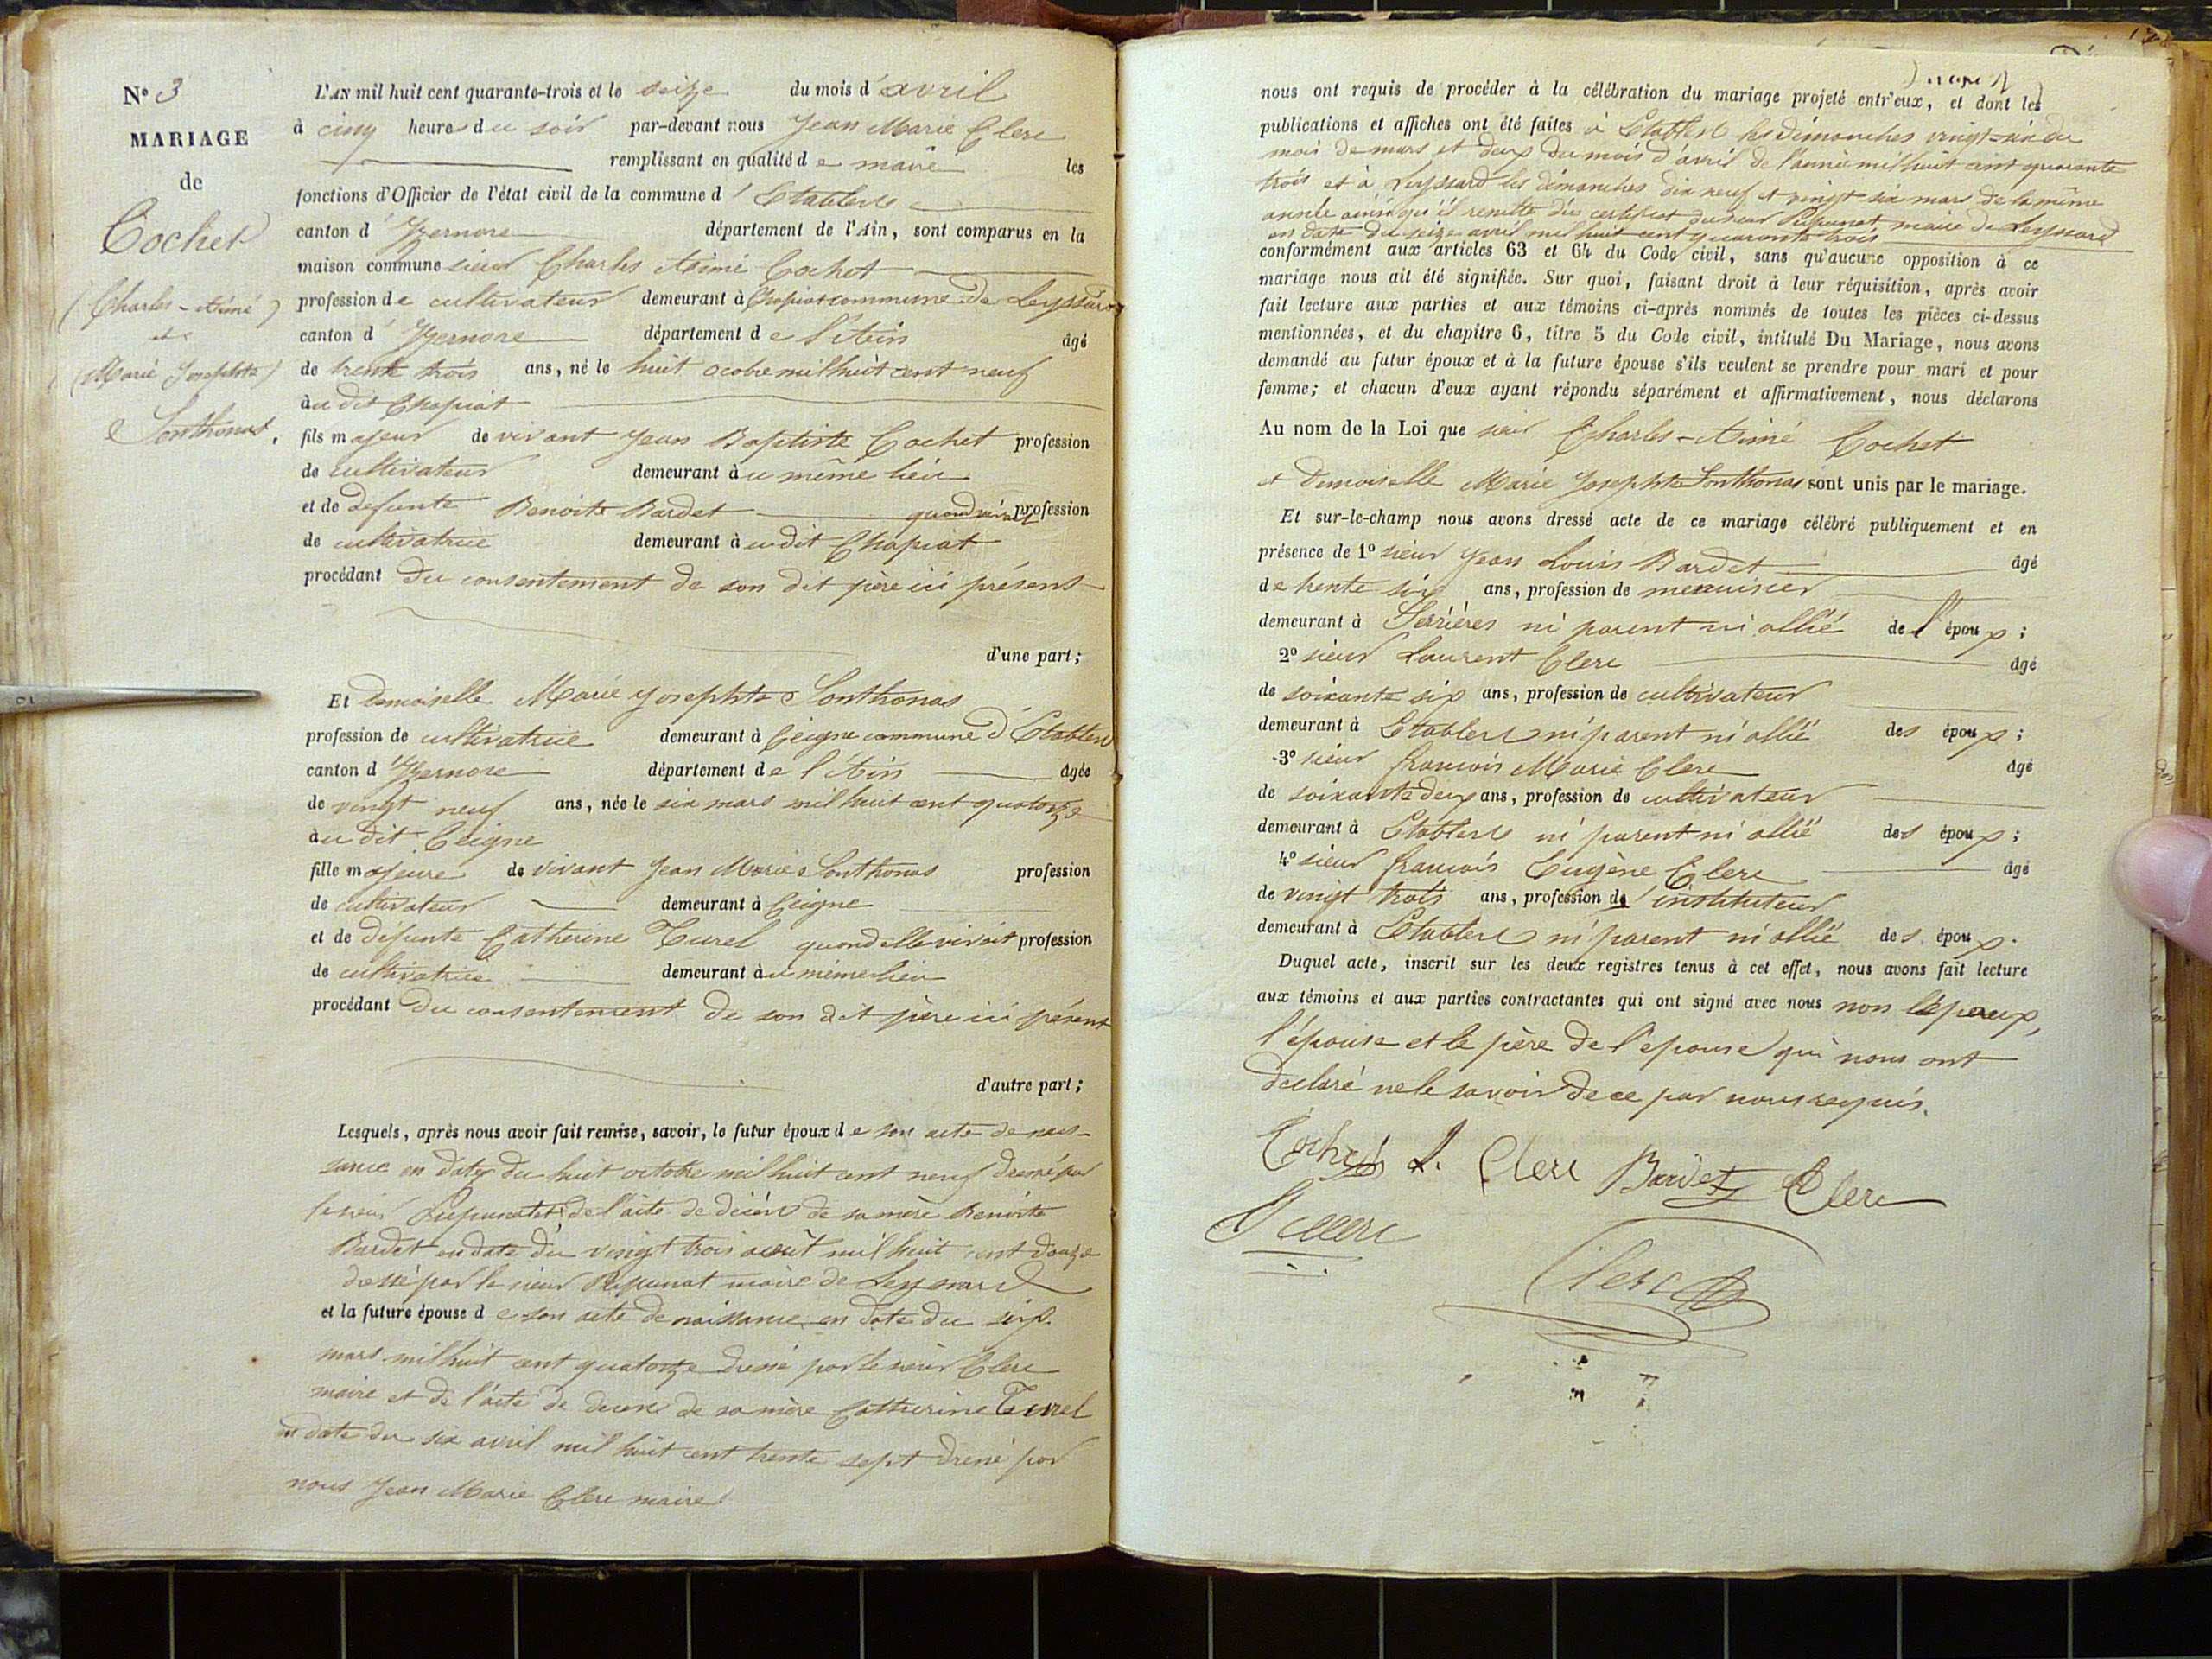 N° 3
MARIAGE
de
Cochet
(Charles-Aimé)
et
(Marie Josephte)
Sonthonas.
L'AN mil huit cent quarante-trois et le seize du mois d'avril
à cinq heures du soir par-devant nous Jean Marie Clerc
remplissant en qualité de maire les
fonctions d'Officier de l'état civil de la commune d'Etables
canton d'Izernore département de l'Ain, sont comparus en la
maison commune sieur Charles Aimé Cochet
profession de cultivateur demeurant à Chapiat commune de Leyssard
canton d'Izernore département de l'Ain âgé
de trente trois ans, né le huit ocobre mil huit cent neuf
àu dit Chapiat
fils majeur de vivant Jean Baptiste Cochet profession
de cultivateur demeurant àu même lieu
et de defunte Benoite Bardet quand vivait profession
de cultivatrice demeurant àudit Chapiat
procédant du consentement de son dit père ici présent
d'une part;
Et demoiselle Marie Josephte Sonthonas
profession de cultivatrice demeurant à Ceigne commune d'Etables
canton d'Izernore département de l'Ain âgée
de vingt neuf ans, née le six mars mil huit cent quatorze
àu dit Ceigne
fille majeure de vivant Jean Marie Sonthonas profession
de cultivateur demeurant à Ceigne
et de défunte Catherine Turel quand elle vivait profession
de cultivatrice demeurant àu même lieu
procédant du consentement de son dit père ici présent
d'autre part;
Lesquels, après nous avoir fait remise, savoir, le futur époux de son acte de nais-
sance en date du huit octobre mil huit cent neuf dressé par
le sieur de l'acte de décès de sa mère Benoite
Bardet en date du vingt trois août mil huit cent douze
dressé par le sieur maire de Leyssard
et la future épouse de son acte de naissance en date du six
mars mil huit cent quatorze dressé par le sieur Clerc
maire et de l'acte de deces de sa mère Catherine Turel
en date du six avril mil huit cent trente sept dressé par
nous Jean Marie Clerc maire
nous ont requis de procéder à la célébration du mariage projeté entr'eux, et dont les
publications et affiches ont été faites à Etables les dimanches vingt-six du
mois de mars et deux du mois d'avril de l'année mil huit cent quarante
trois et à Leyssard les dimanches dix neuf et vingt six mars de la même
année ainsi qu'il resulte du certificat du sieur maire de Leyssard
en date du seize avril mil huit cent quarante trois
conformément aux articles 63 et 64 du Code civil, sans qu'aucune opposition à ce
mariage nous ait été signifiée. Sur quoi, faisant droit à leur réquisition, après avoir
fait lecture aux parties et aux témoins ci-après nommés de toutes les pièces ci-dessus
mentionnées, et du chapitre 6, titre 5 du Code civil, intitulé Du Mariage, nous avons
demandé au futur époux et à la future épouse s'ils veulent se prendre pour mari et pour
femme; et chacun d'eux ayant répondu séparément et affirmativement, nous déclarons
Au nom de la Loi que sieur Charles-Aimé Cochet
et Demoiselle Marie Josephte Sonthonas sont unis par le mariage.
Et sur-le-champ nous avons dressé acte de ce mariage célébré publiquement et en
présence de 1° sieur Jean Louis Bardet âgé
de trente six ans, profession de menuisier
demeurant à Serrières ni parent ni allié de l'époux;
2° sieur Laurent Clerc âgé
de soixante six ans, profession de cultivateur
demeurant à Etables ni parent ni allié des époux;
3° sieur francois Marie Clerc âgé
de soixante deux ans, profession de cultivateur
demeurant à Etables ni parent ni allié des époux;
4° sieur francois Eugène Clerc âgé
de vingt trois ans, profession d'instituteur
demeurant à Etables ni parent ni allié des époux.
Duquel acte, inscrit sur les deux registres tenus à cet effet, nous avons fait lecture
aux témoins et aux parties contractantes qui ont signé avec nous non l'époux,
l'épouse et le père de l'epouse qui nous ont
declaré ne le savoir de ce par nous requis.
Cochet L. Clerc Bardet Clerc
Clerc
Clerc